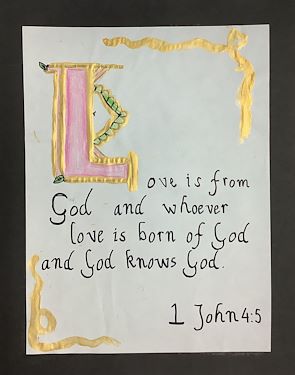 Love is from
God and whoever
love is born of God
and God knows God.
1 John 4:5